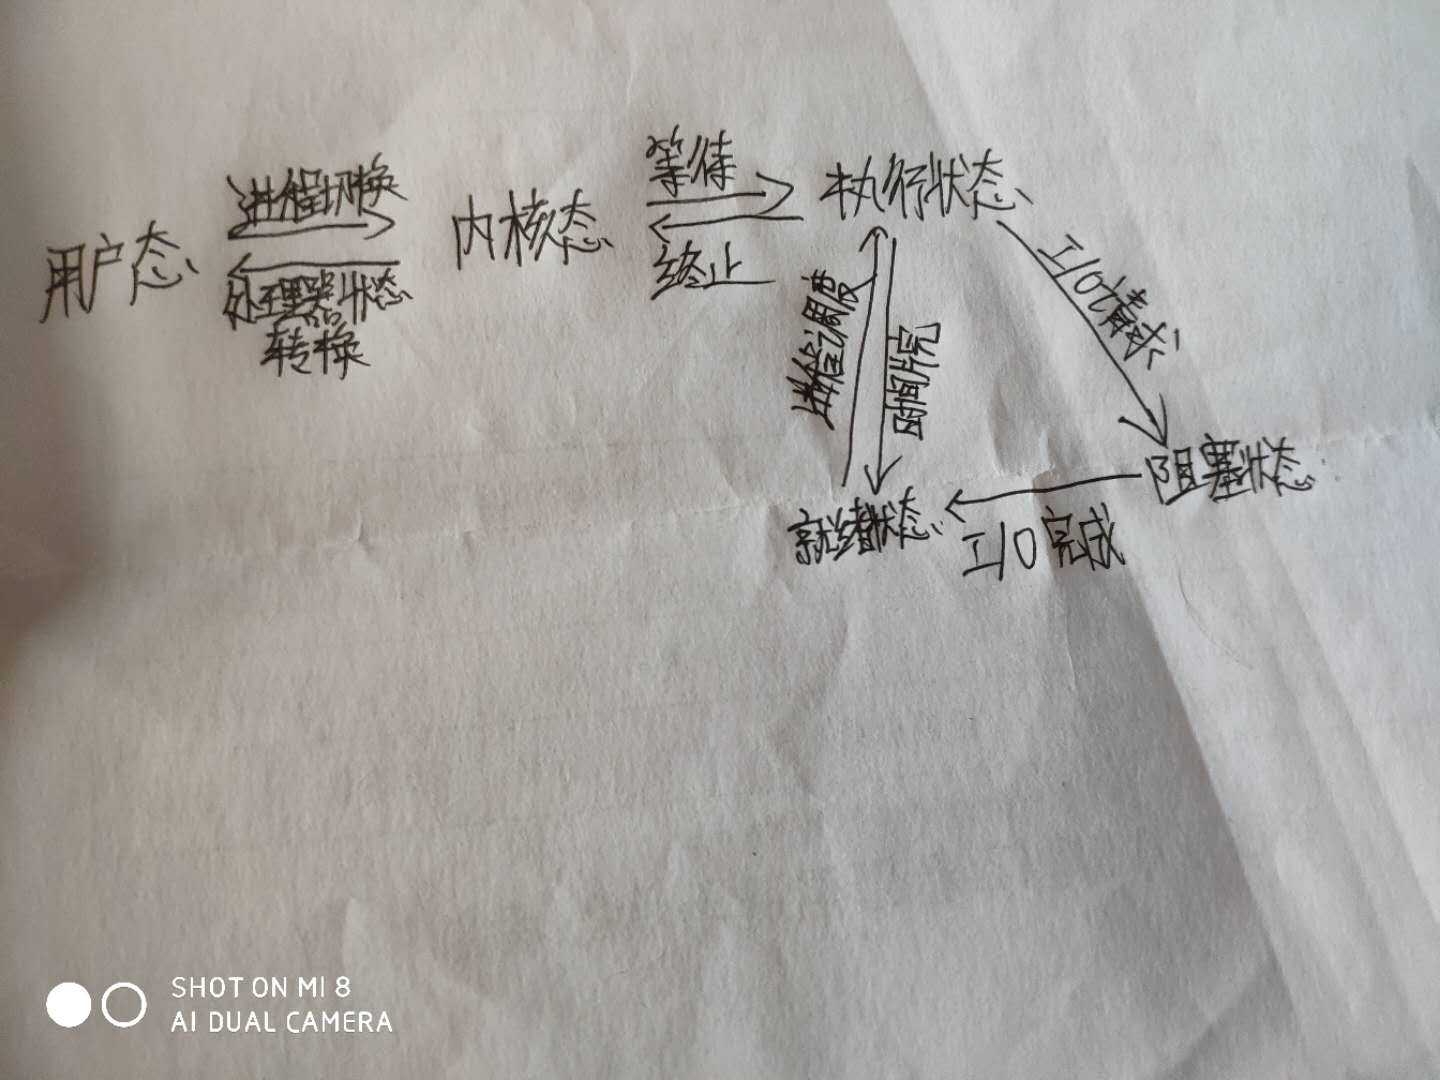 进程切换
用户态
处理器状态
转换
内核态
等待
终止
执行状态
进程调度
时间片完
I/O请求
阻塞状态
I/O完成
就绪状态
SHOT ON MI 8
AI DUAL CAMERA